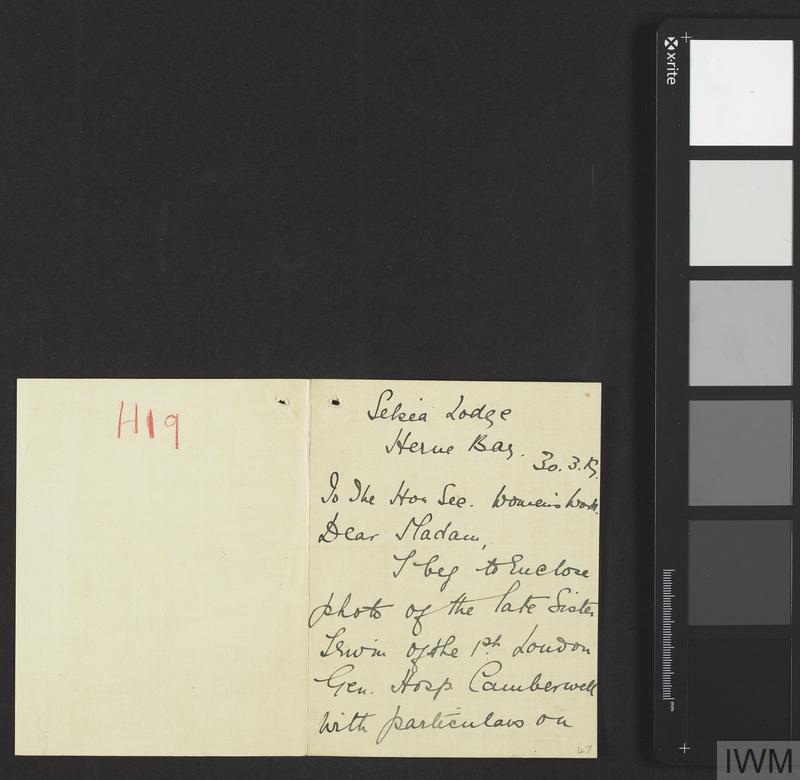 H19
Lodge
Herne Bay.
30.3.19.
To The Hon Sec. Women's Work.
Dear Madam,
I beg to Enclose
photo of the late Sister
Irwin of the 1st London
Gen. Hosp. Camberwell
with particulars on
47
x-rite
mm
IWM